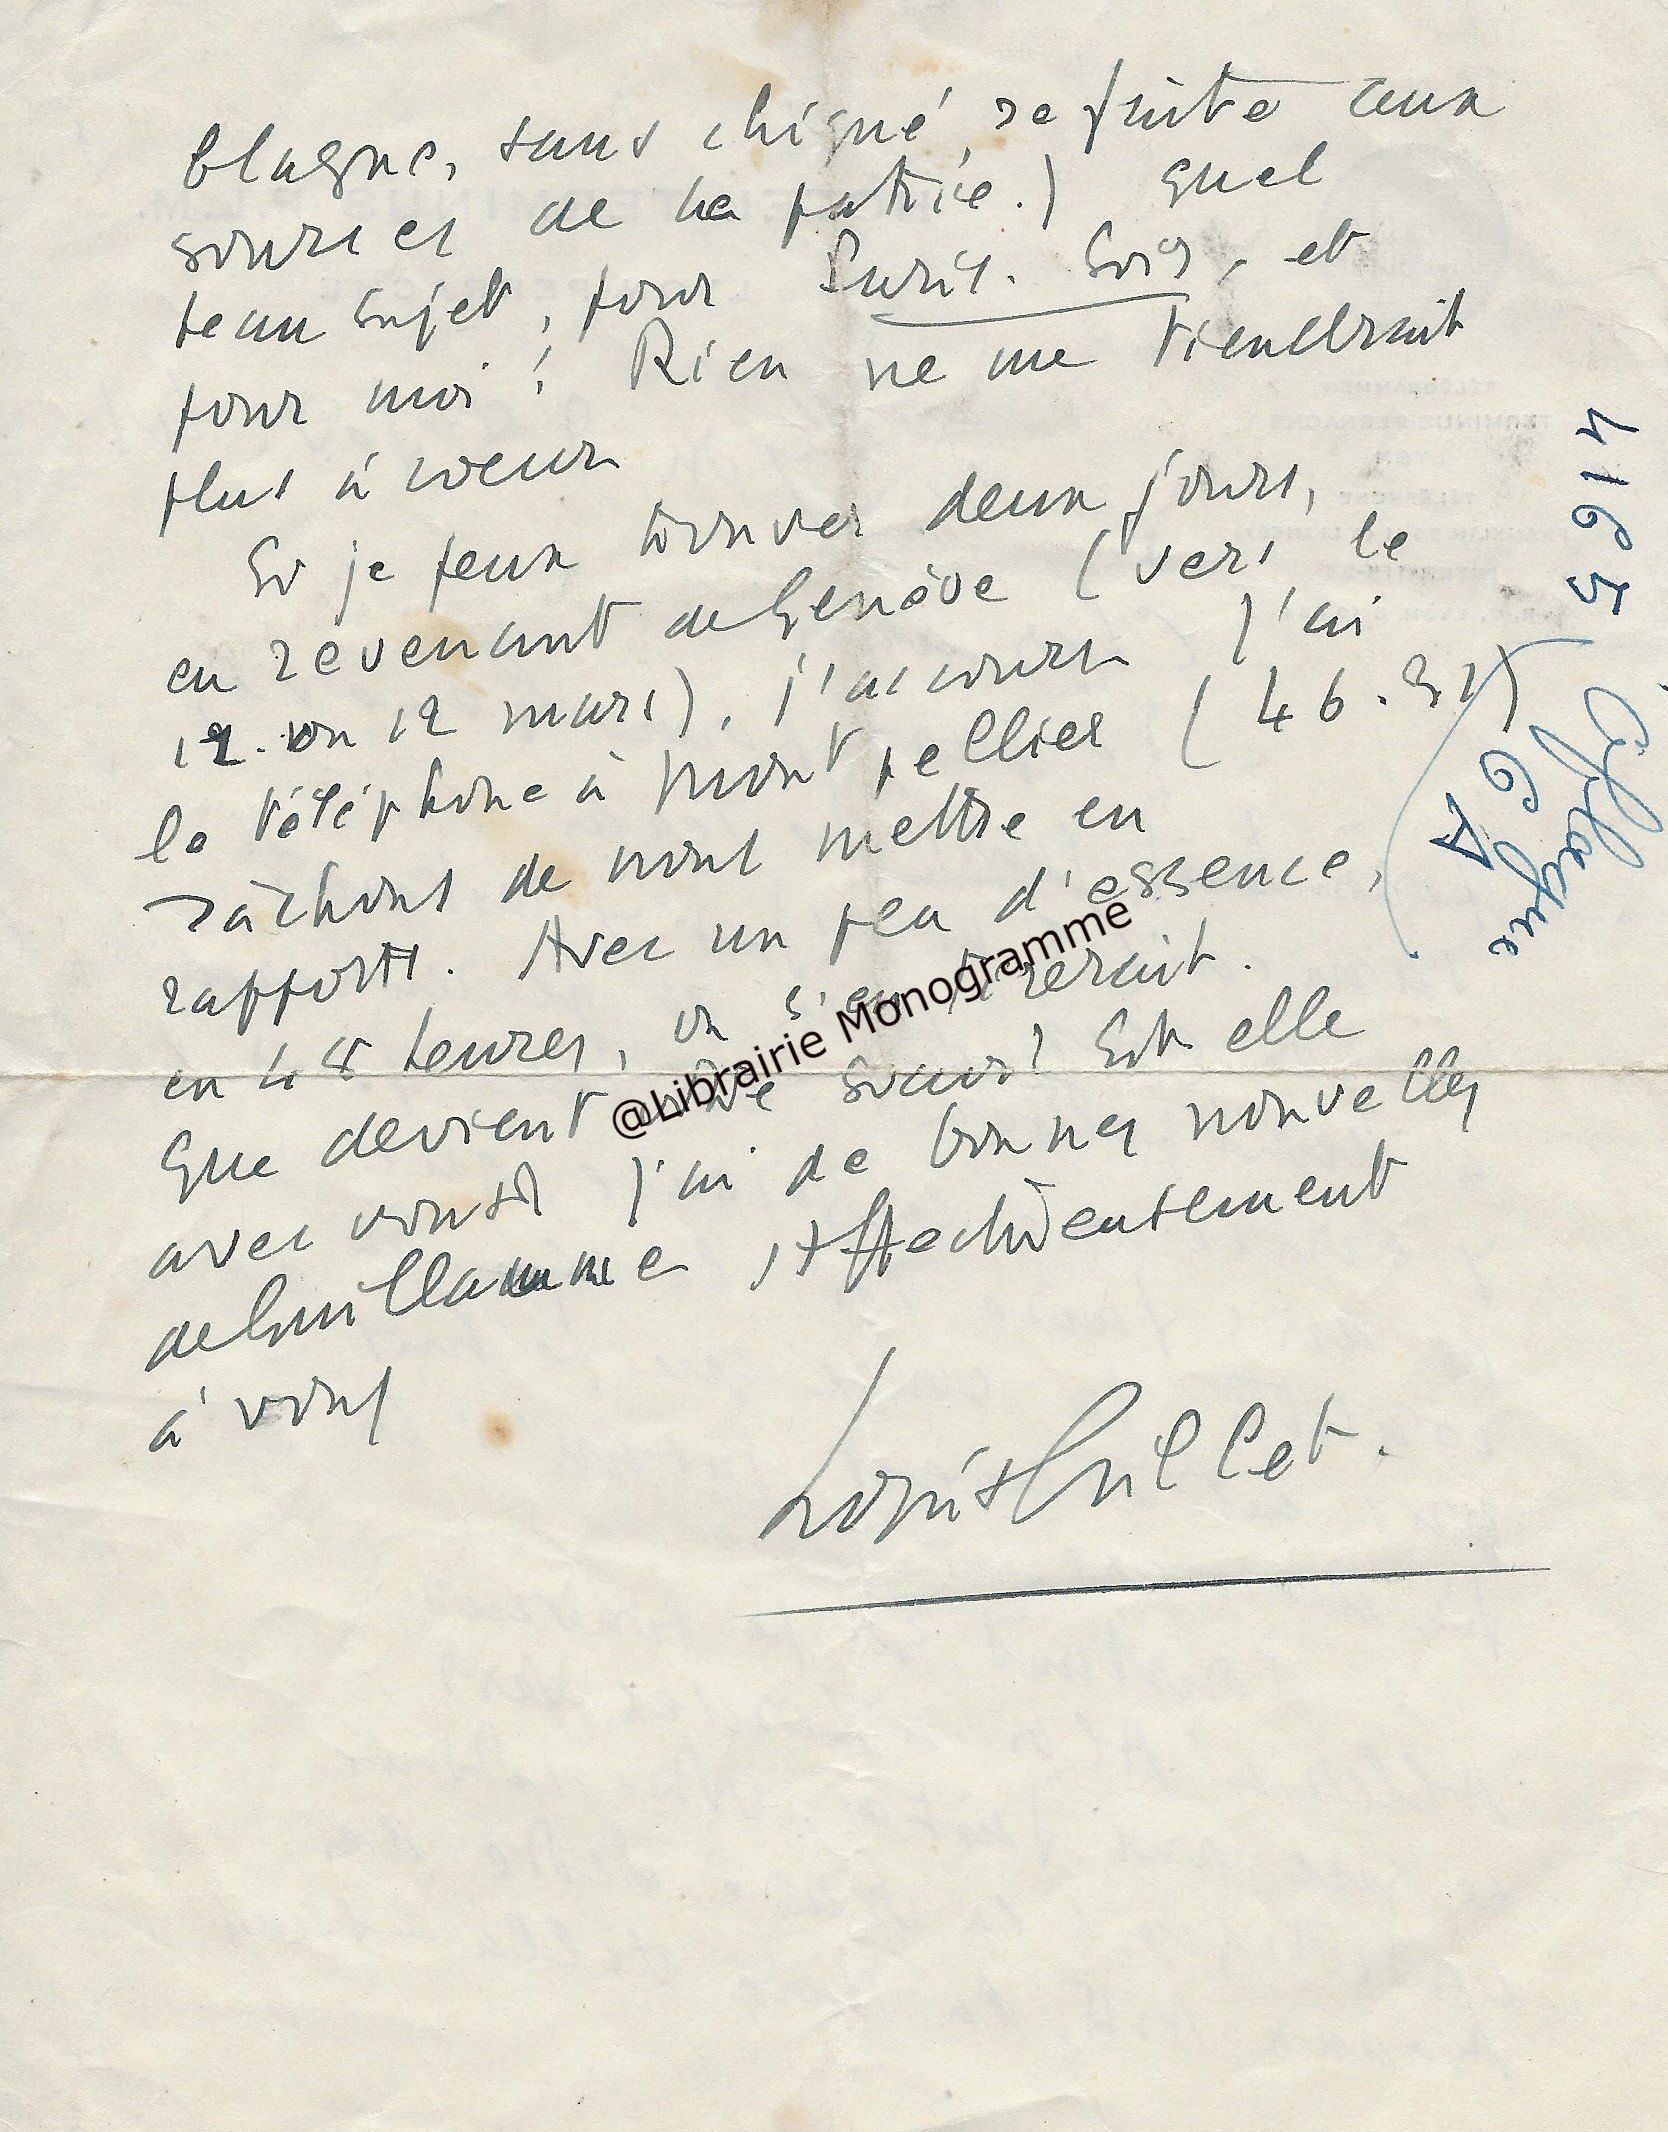 blague, sans chiqué, se fuite aux
sources de la patrie.) Quel
beau sujet, pour Paris. Soir, et
pour moi ! Rien ne me tiendrait
plus à coeur
Si je peux trouver deux jours,
en revenant de Genève (vers le
12 ou 12 mars), j'accours J'ai
le téléphone à Montpellier (46.31)
Tâchons de nous mettre en
rapports. Avec un peu d'essence,
en 48 heures, on s'en tirerait.
Que devient votre soeur? Est elle
avec vous? J'ai de bonnes nouvelles
de Guillaume, Affectueusement
à vous
Louis Gillet.
4165
6 A
@Librairie Monogramme